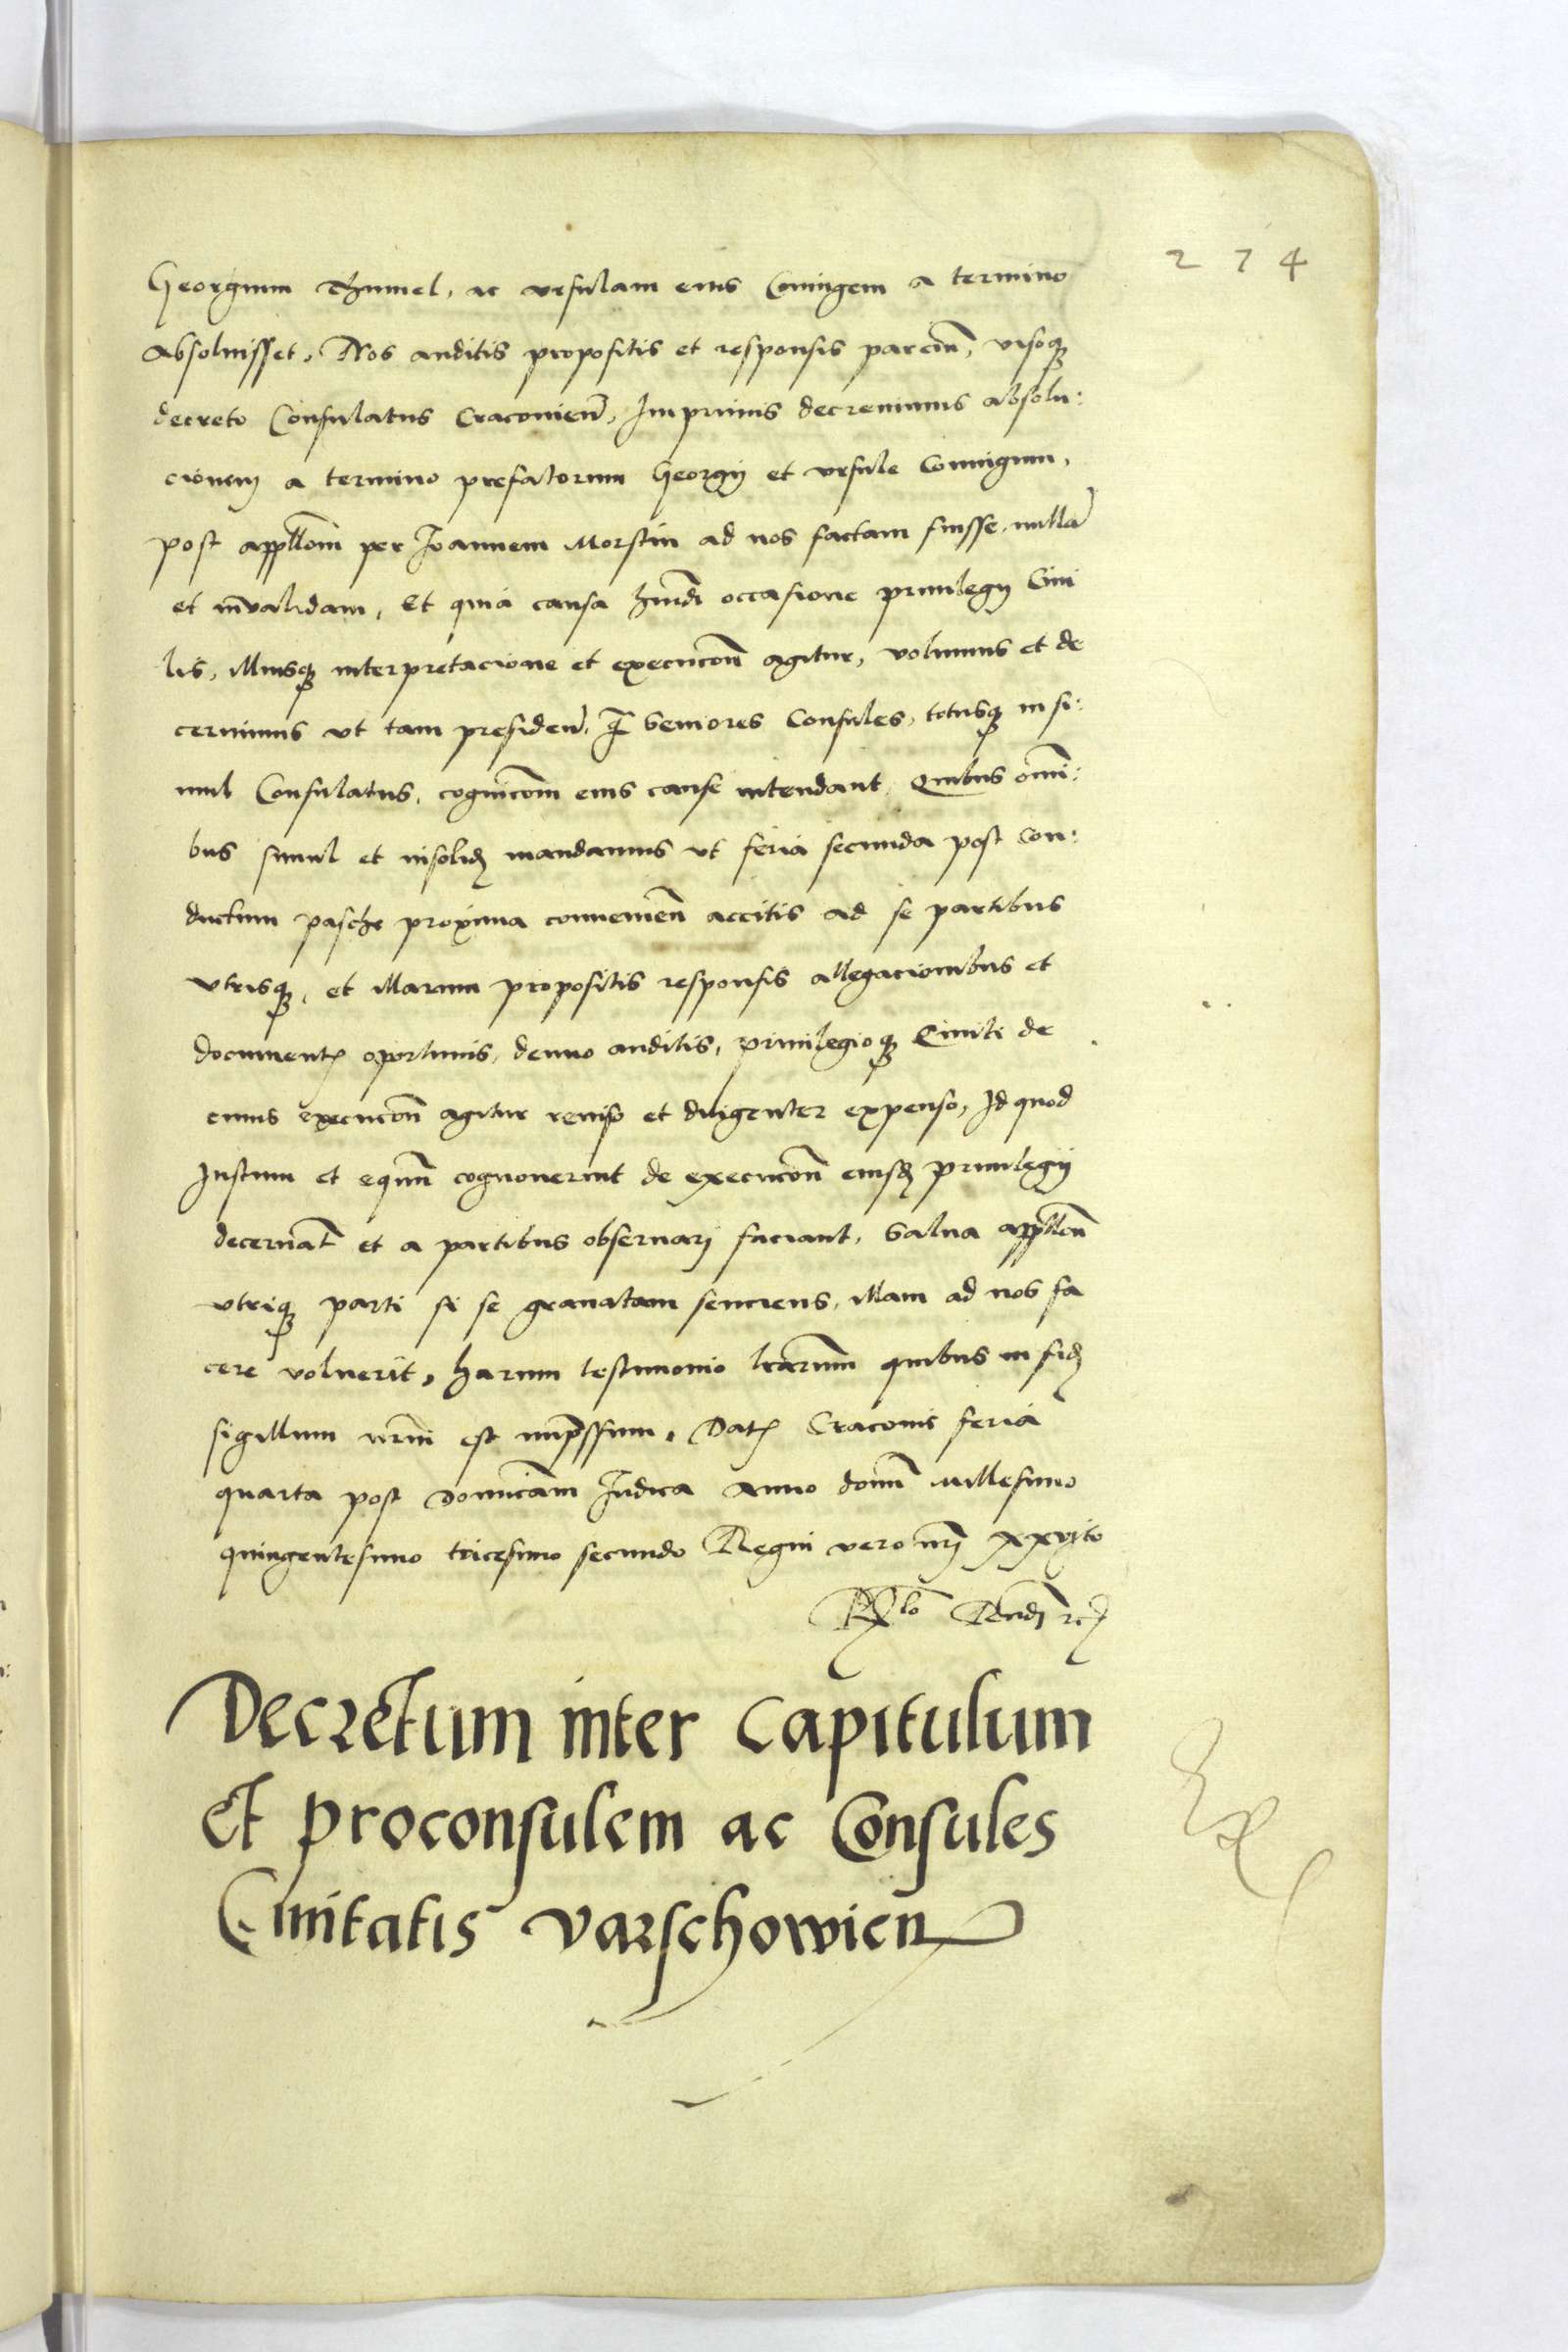 274
Georgium Thumel, ac vrsulam eius Coniugem a termino
absoluisset, Nos auditis propositis et responsis parciũ, visoqꝫ
decreto Consulatus Cracouieñ, Imprimis decreuimus absolu:
cionem a termino prefatorum Georgij et vrsule Coniugum,
post appłłoem per Joannem Morstin ad nos factam fuisse, nullã
et inualidam, Et quia causa hm̃di occasione priuilegij Ciui
lis, illiusqꝫ interpretacione et execucoñ agitur, volumus et de
cernimus vt tam presideñ, q̃ seniores Consules, totusqꝫ in si:
mul Consulatus, cognicoem eius cause intendant, Quibus om̃i:
bus simul et insolidꝫ mandamus vt feria secunda post Con:
ductum pasche proxima conuenieñ accitis ad se partibus
vtrisqꝫ, et illarum propositis responsis allegacionibus et
documentꝭ oportunis, denuo auditis, priuilegioqꝫ Ciuili de
cuius execucoñ agitur reuiso et diligenter expenso, Id quod
Iustum et equũ cognouerint de execucoñ eiusdꝫ priuilegij
decernãt et a partibus obseruarj faciant, Salua appłłoñ
vtriqꝫ parti si se grauatam senciens, illam ad nos fa
cere voluerit, harum testimonio lrarum quibus in fidꝫ
sigillum nrm̃ est imp̃ssum, Datꝭ Cracouie feria
quarta post Dominicam Iudica Anno domĩ Millesimo
quingentesimo tricesimo secundo Regni vero nrj xxvjto
Decretum inter Capitulum
et proconsulem ac Consules
Ciuitatis Varschowien